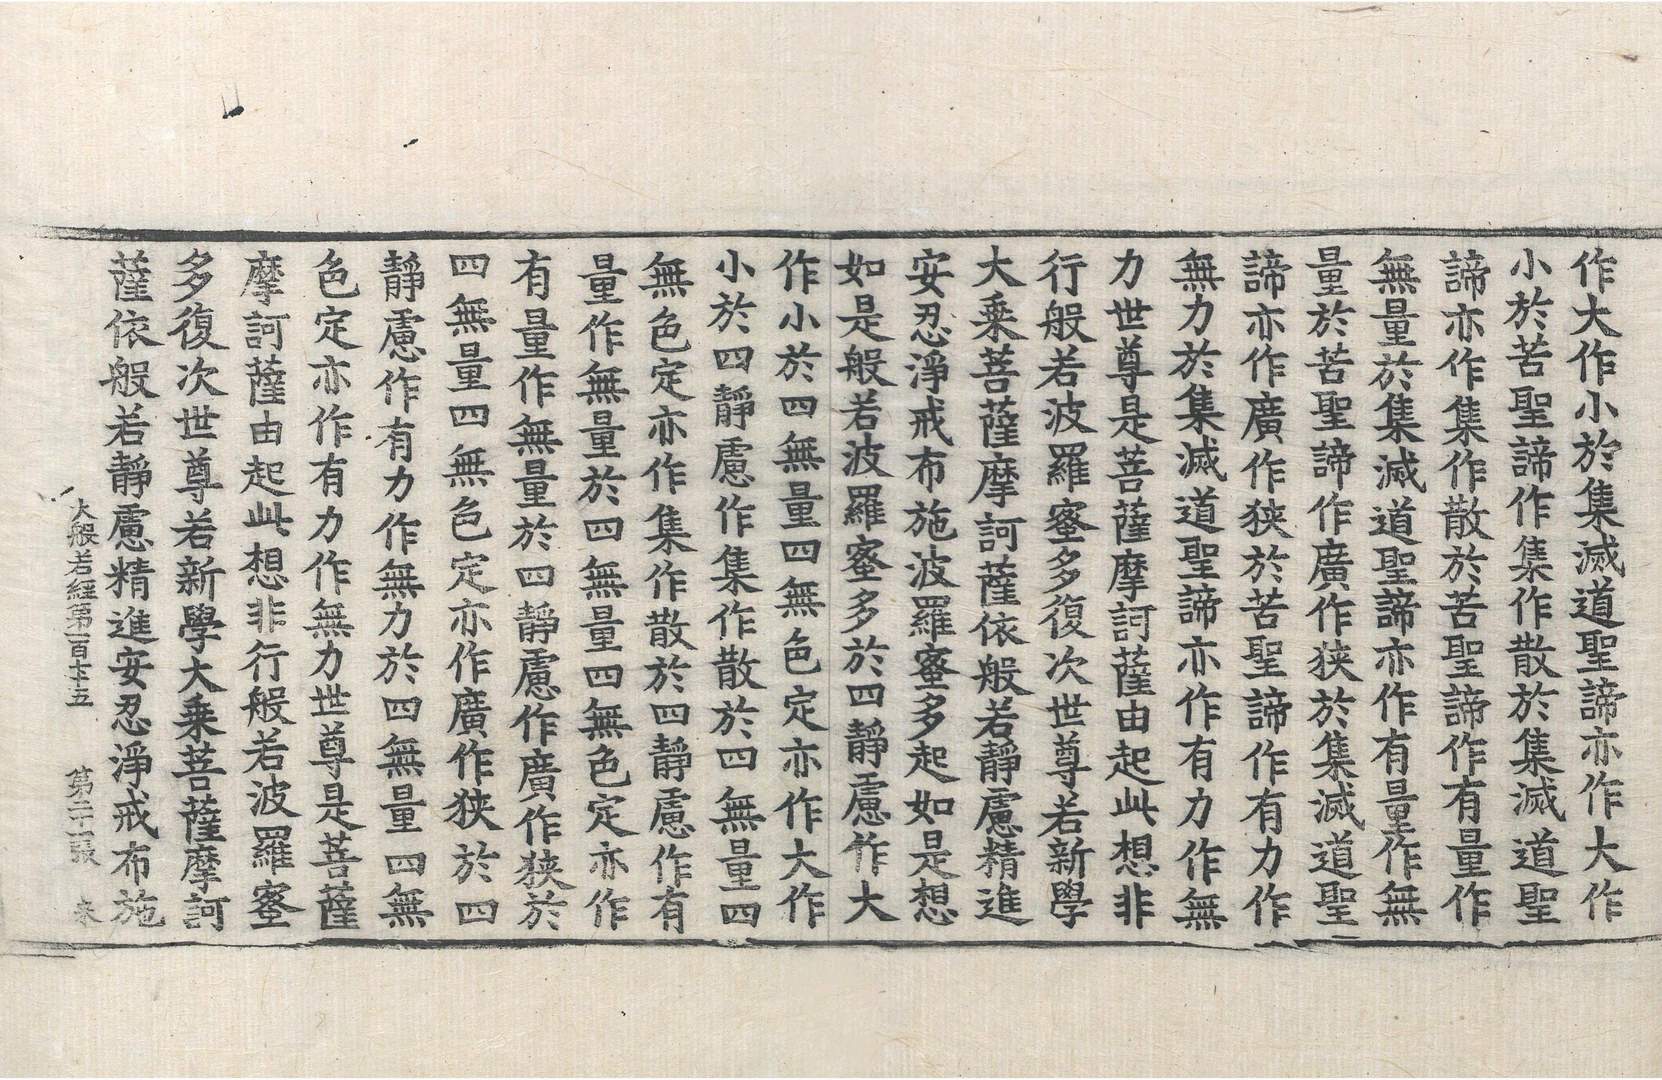 作大作小於集滅道聖諦亦作大作
小於苦聖諦作集作散於集滅道聖
諦亦作集作散於苦聖諦作有量作
無量於集滅道聖諦亦作有量作無
量於苦聖諦作廣作狹於集滅道聖
諦亦作廣作狹於苦聖諦作有力作
無力於集滅道聖諦亦作有力作無
力世尊是菩薩摩訶薩由起此想非
行般若波羅蜜多復次世尊若新學
大乘菩薩摩訶薩依般若靜慮精進
安忍淨戒布施波羅蜜多起如是想
如是般若波羅蜜多於四靜慮作大
作小於四無量四無色定亦作大作
小於四靜慮作集作散於四無量四
無色定亦作集作散於四靜慮作有
量作無量於四無量四無色定亦作
有量作無量於四靜慮作廣作狹於
四無量四無色定亦作廣作狹於四
靜慮作有力作無力於四無量四無
色定亦作有力作無力世尊是菩薩
摩訶薩由起此想非行般若波羅蜜
多復次世尊若新學大乘菩薩摩訶
薩依般若靜慮精進安忍淨戒布施
大般若經第一百七十五 来